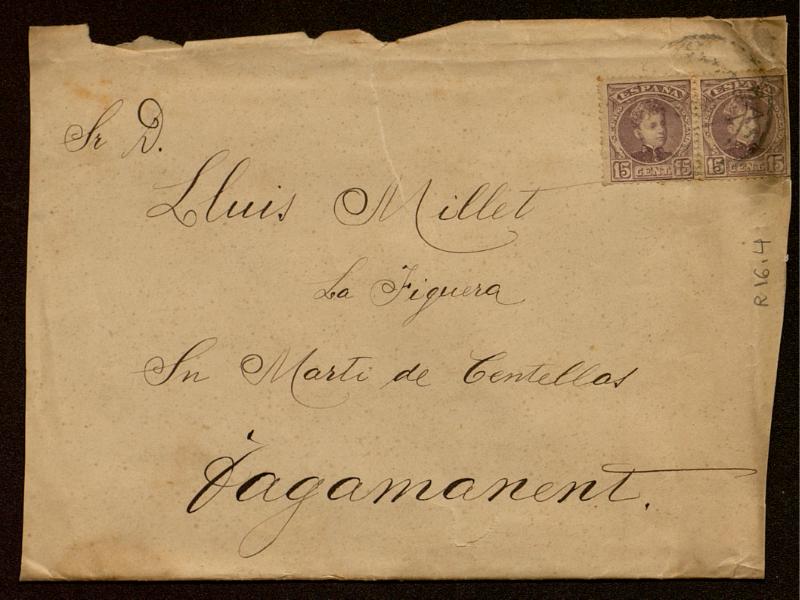 ESPAÑA ESPAÑA
15 CENT. 15 15 CENT. 15
Sr D.
Lluis Millet
La Figuera
Sn Marti de Centellas
Tagamanent.
R16.4